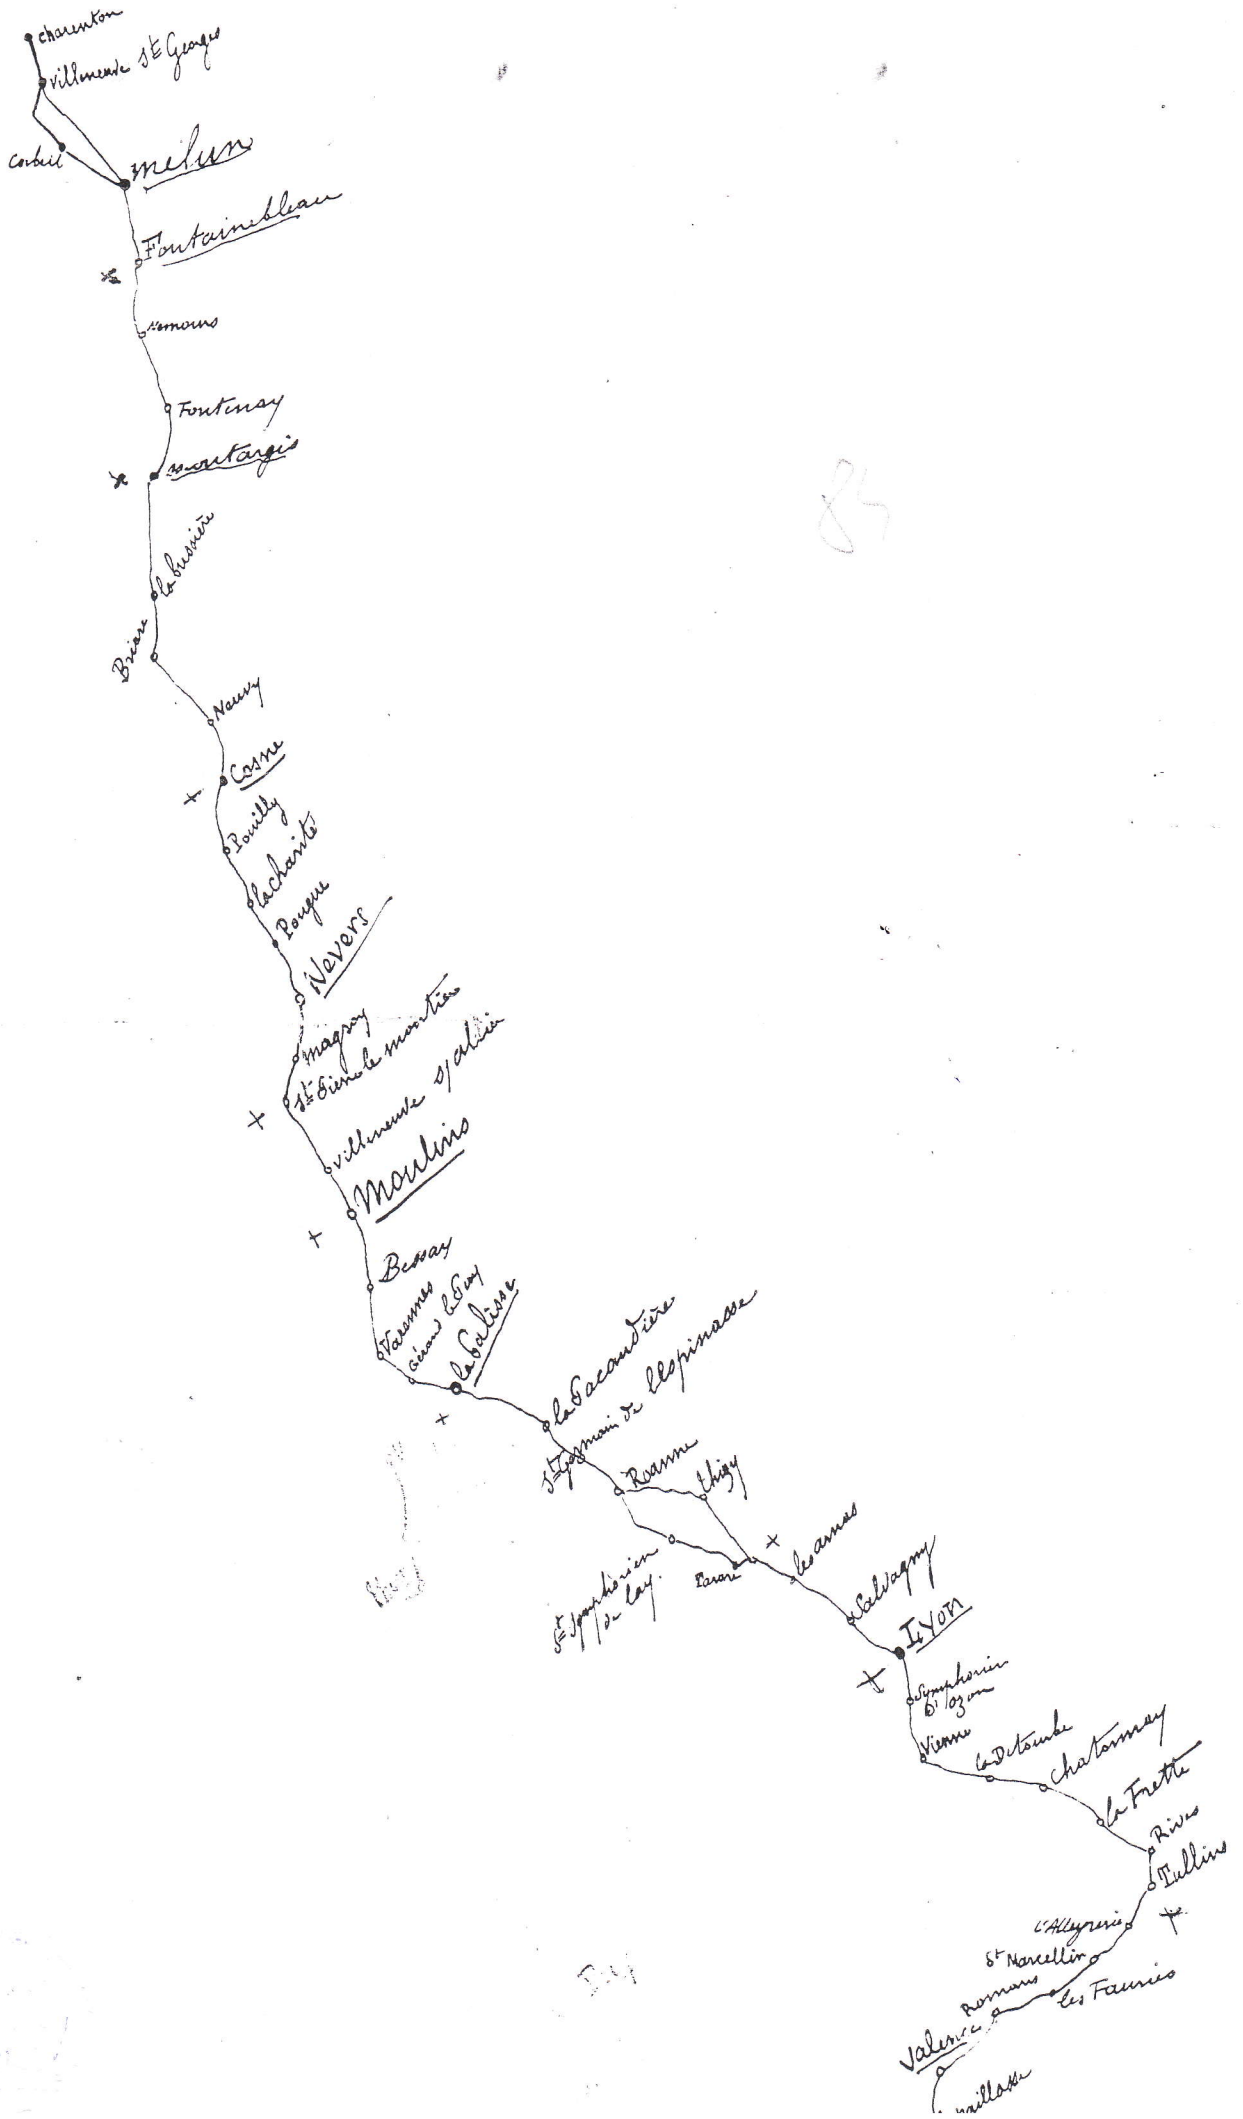 charenton
villeneuve St Georges
Corbeil
melun
Fontainebleau
Nemours
Fontenay
montargis
la bussière
Briare
Neuvy
Cosne
Pouilly
la charité
Pougue
Nevers
magny
St Pierre le moutier
villeneuve s/allier
Moulins
Bessay
Varennes
Gérand le Puy
la Palisse
la Pacaudière
St Germain de l'Espinasse
Roanne
thizy
St Symphorien
de Lay.
Tarare
les arnas
Salvagny
Lyon
Symphorien
D'Ozon
Vienne
la Detourbe
Chatonnay
la Frette
Rives
Tullins
L'Allegrerie
St Marcellin
les Fauries
Romans
Valence
paillasse